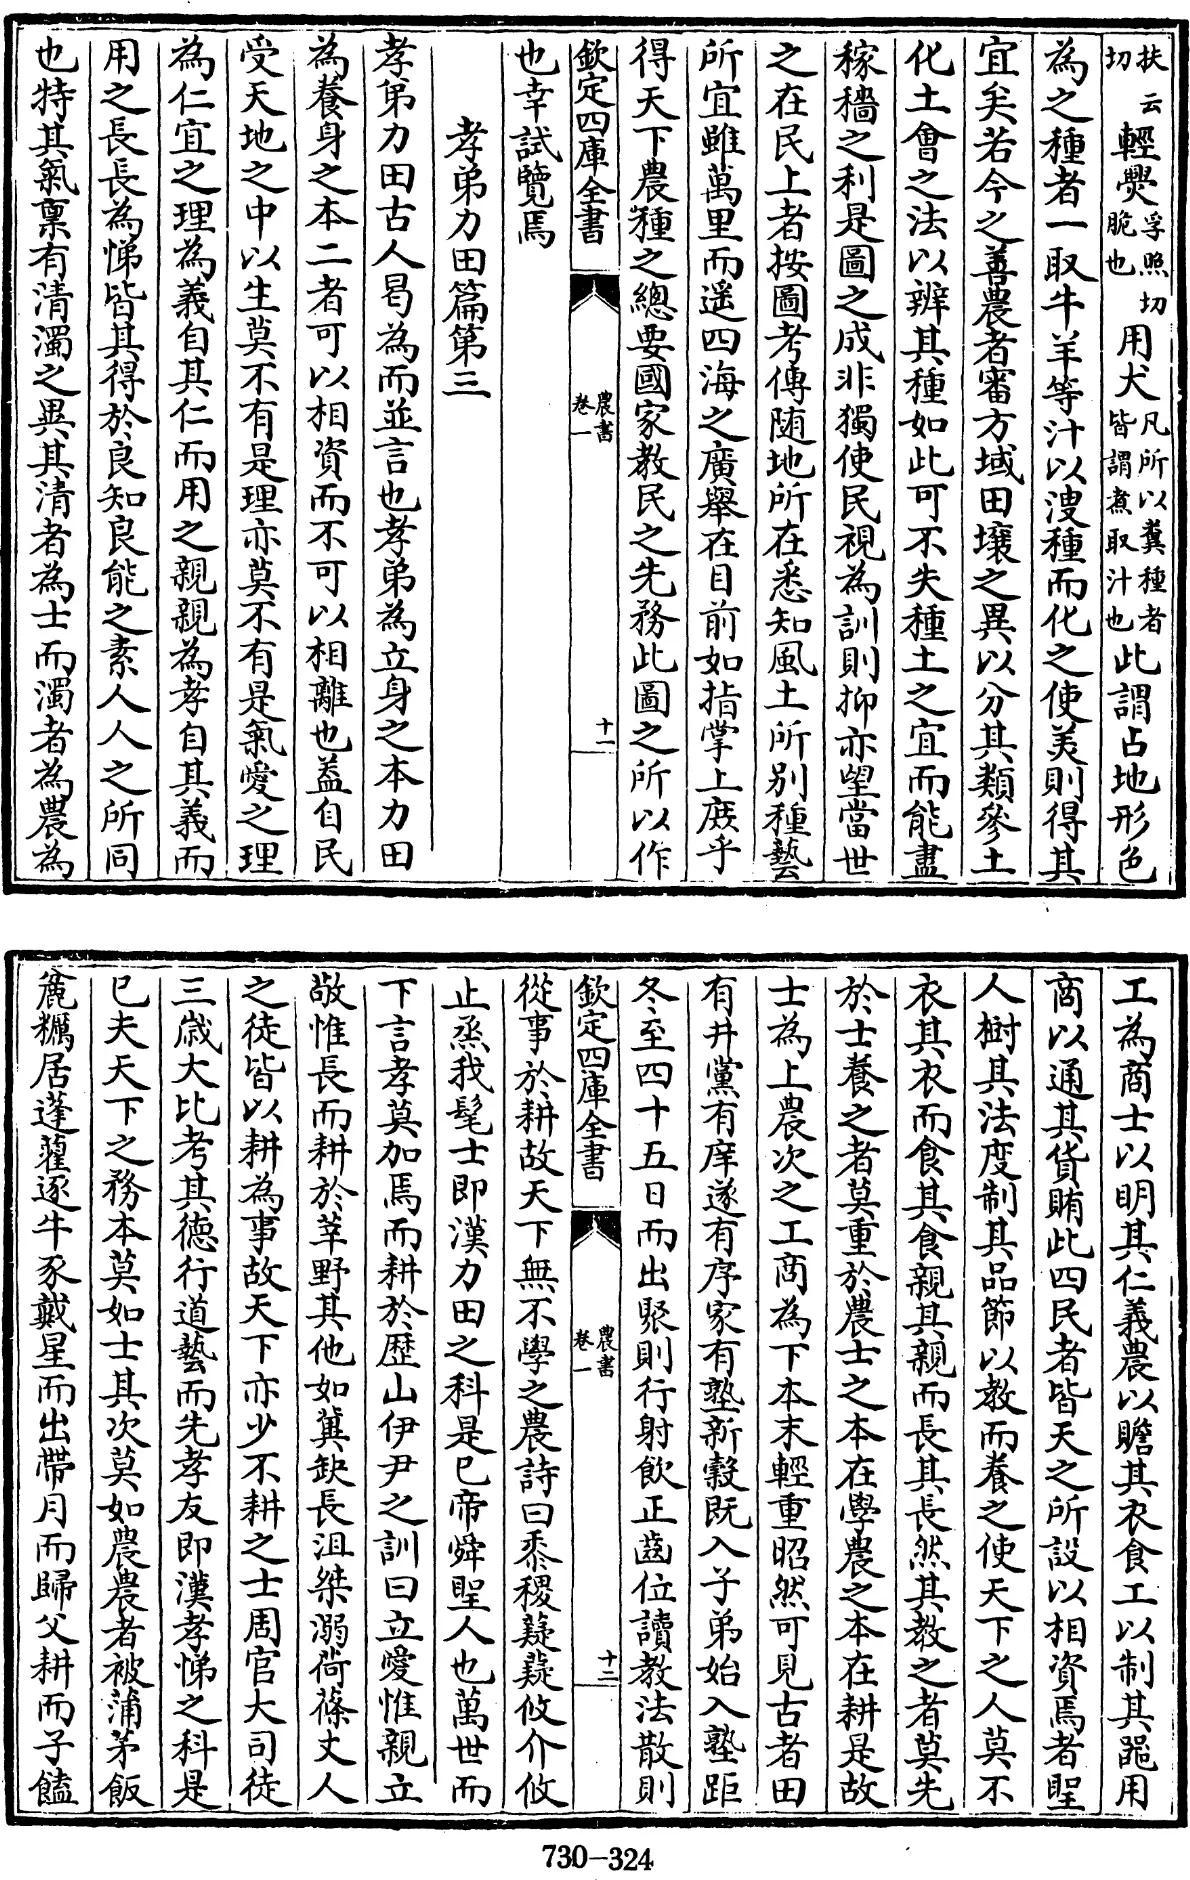 扶云切輕㷱孚照切脆也用犬凡所以糞種者皆謂煮取汁也此謂占地形色
為之種者一取牛羊等汁以溲種而化之使美則得其
宜矣若今之善農者審方域田壤之異以分其類參土
化土會之法以辨其種如此可不失種土之宜而能盡
稼穡之利是圖之成非獨使民視為訓則抑亦望當世
之在民上者按圖考傳随地所在悉知風土所别種藝
所宜雖萬里而遥四海之廣舉在目前如指掌上庻乎
得天下農種之總要國家教民之先務此圖之所以作
欽定四庫全書
農書
卷一
十一
也幸試覽焉
孝弟力田篇第三
孝弟力田古人曷為而並言也孝弟為立身之本力田
為養身之本二者可以相資而不可以相離也葢自民
受天地之中以生莫不有是理亦莫不有是氣愛之理
為仁宜之理為義自其仁而用之親親為孝自其義而
用之長長為悌皆其得於良知良能之素人人之所同
也特其氣禀有清濁之異其清者為士而濁者為農為
工為商士以明其仁義農以贍其衣食工以制其噐用
商以通其貨賄此四民者皆天之所設以相資焉者聖
人樹其法度制其品節以教而養之使天下之人莫不
衣其衣而食其食親其親而長其長然其教之者莫先
於士養之者莫重於農士之本在學農之本在耕是故
士為上農次之工商為下本末輕重昭然可見古者田
有井黨有庠遂有序家有塾新穀既入子弟始入塾距
冬至四十五日而出聚則行射飲正齒位讀教法散則
欽定四庫全書
農書
卷一
十二
從事於耕故天下無不學之農詩曰黍稷薿薿攸介攸
止烝我髦士即漢力田之科是已帝舜聖人也萬世而
下言孝莫加焉而耕於歷山伊尹之訓曰立愛惟親立
敬惟長而耕於莘野其他如冀缺長沮桀溺荷蓧丈人
之徒皆以耕為事故天下亦少不耕之士周官大司徒
三歲大比考其德行道藝而先孝友即漢孝悌之科是
已夫天下之務本莫如士其次莫如農農者被蒲茅飯
麄糲居蓬藋逐牛豕戴星而出帶月而歸父耕而子饁
730-324